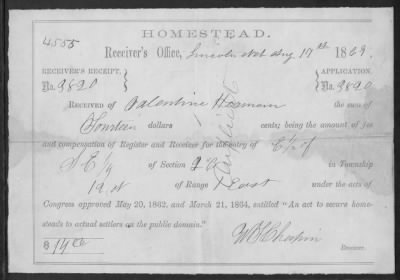 HOMESTEAD.
4555
Receiver's Office, Lincoln Neb Aug 17th 1869.
RECEIVER'S RECEIPT, APPLICATION,
No. 2820 No. 2820
RECEIVED of Valentine the sum of
Fourteen dollars cents; being the amount of fee
and compensation of Register and Receiver for the entry of E½ of
S E ¼ of Section in Township
of Range 1 East under the acts of
Congress approved May 20, 1862, and March 21, 1864, entitled "An act to secure home-
steads to actual settlers on the public domain."
$ 14 00
Receiver.